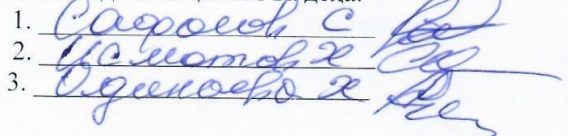 1. Сафолов С
2. Исматов Х
3. Одинаева Х